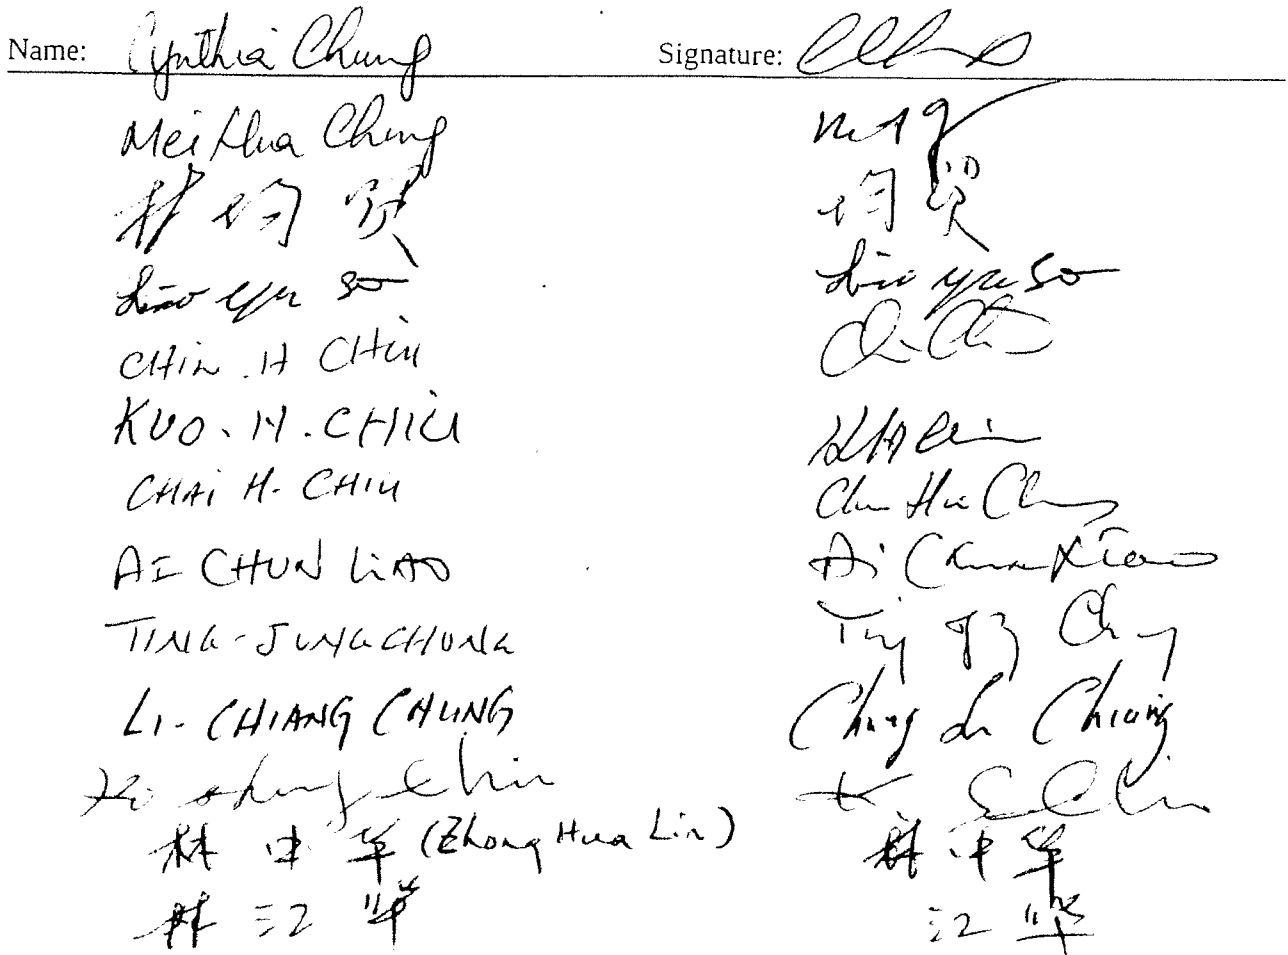 Name: Cynthia Chung Signature:
Mei Hua Chung
林均贤 均贤
Liao Yu So Liao Yu So
CHIN . H CHIU
KUO . H . CHIU
CHAI H. CHIU
AI CHUN LIAO Ai Chun Liao
TING-JUNG CHUNG Ting Chung
LI-CHIANG CHUNG Chung Li Chiang
Chiu
林中华 (Zhong Hua Lin) 林中华
林江华 江华